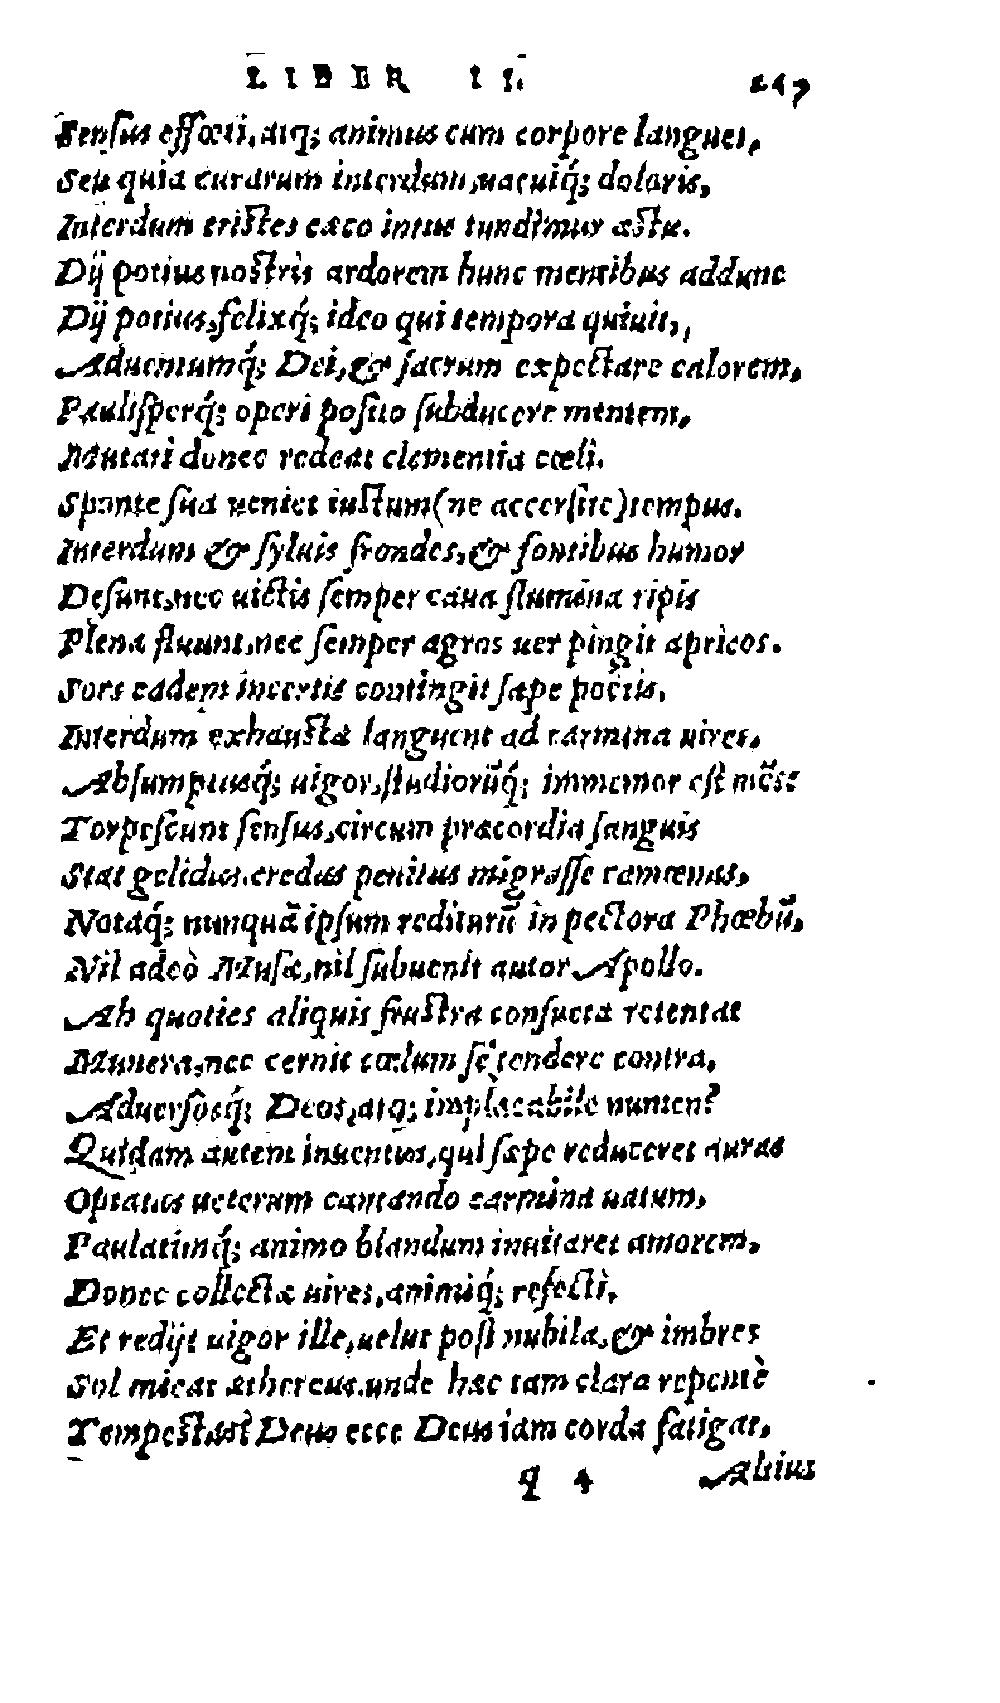 LIBER II. 247
Sensus effœti, atq; animus cum corpore languet,
Seu quia curarum interdum, uacuiq́; doloris,
Interdum tristes cæco intus tundimur æstu.
Dij potius nostris ardorem hunc mentibus addunt
Dij potius, felixq́; ideo qui tempora quiuit,
Aduentumq́; Dei, & sacrum expectare calorem,
Paulisperq́; operi posito subducere mentem,
Mutati donec redeat clementia cœli.
Sponte sua ueniet iustum (ne accersite) tempus.
Interdum & syluis frondes, & fontibus humor
Desunt, nec uictis semper caua flumina ripis
Plena fluunt, nec semper agros uer pingit apricos.
Sors eadem incertis contingit sæpe poëtis,
Interdum exhaustæ languent ad carmina uires,
Absumptusq́; uigor, studiorũq́; immemor est mẽs:
Torpescunt sensus, circum præcordia sanguis
Stat gelidus, credas penitus migrasse camœnas,
Notaq́; nunquã ipsum rediturũ in pectora Phœbũ,
Nil adeò Musæ, nil subuenit autor Apollo.
Ah quoties aliquis frustra consueta retentat
Munera, nec cernit cœlum se tendere contra,
Aduersosq́; Deos, atq; implacabile numen?
Quidam autem inuentus, qui sæpe reduceret auras
Optatas ueterum cantando carmina uatum,
Paulatimq́; animo blandum inuitaret amorem,
Donec collectæ uires, animiq́; refecti,
Et redijt uigor ille, uelut post nubila, & imbres
Sol micat æthereus, unde hæc tam clara repentè
Tempestas? Deus ecce Deus iam corda fatigat,
q 4 Altius